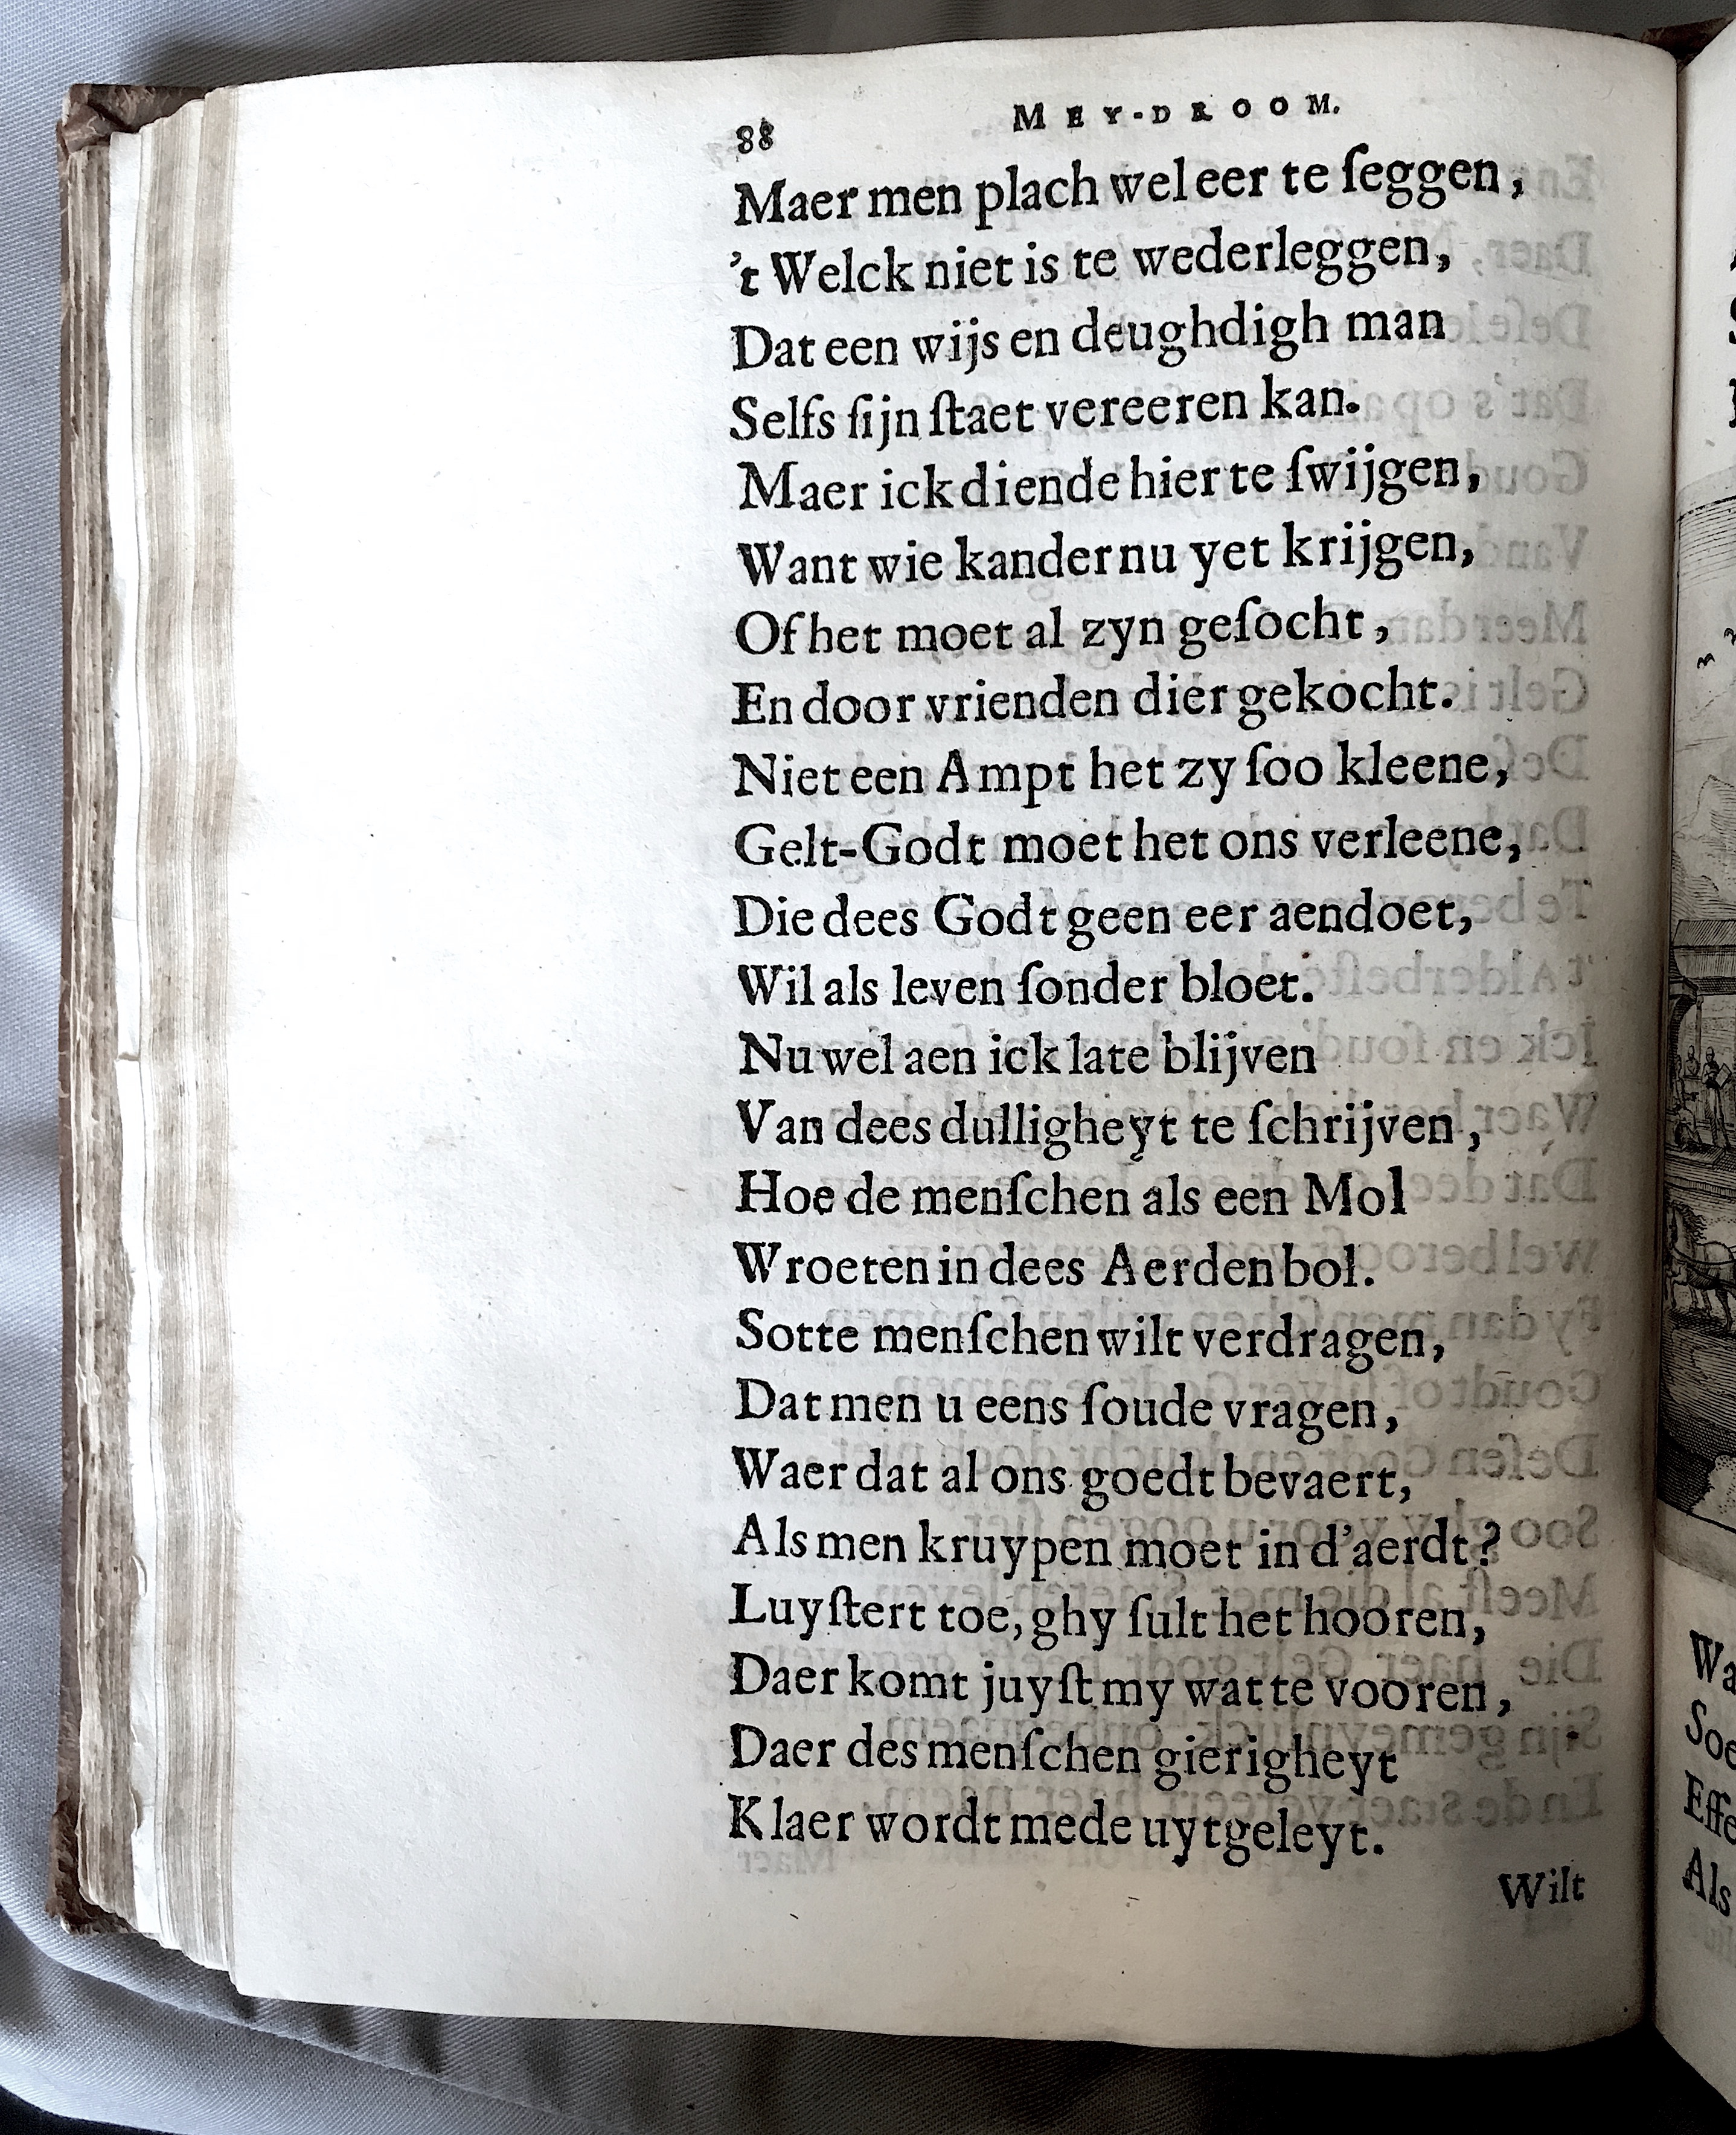 88 MEY-DROOM.
Maer men plach wel eer te ſeggen,
't Welck niet is te wederleggen,
Dat een wijs en deughdigh man
Selfs ſijn ſtaet vereeren kan.
Maer ick diende hier te ſwijgen,
Want wie kander nu yet krijgen,
Of het moet al zyn geſocht,
En door vrienden dier gekocht.
Niet een Ampt het zy ſoo kleene,
Gelt-Godt moet het ons verleene,
Die dees Godt geen eer aendoet,
Wil als leven ſonder bloet.
Nu wel aen ick late blijven
Van dees dulligheyt te ſchrijven,
Hoe de menſchen als een Mol
Wroeten in dees Aerden bol.
Sotte menſchen wilt verdragen,
Dat men u eens ſoude vragen,
Waer dat al ons goedt bevaert,
Als men kruypen moet in d'aerdt?
Luyſtert toe, ghy ſult het hooren,
Daer komt juyſt my wat te vooren,
Daer des menſchen gierigheyt
Klaer wordt mede uytgeleyt.
Wilt
Wa
Soe
Effe
Als